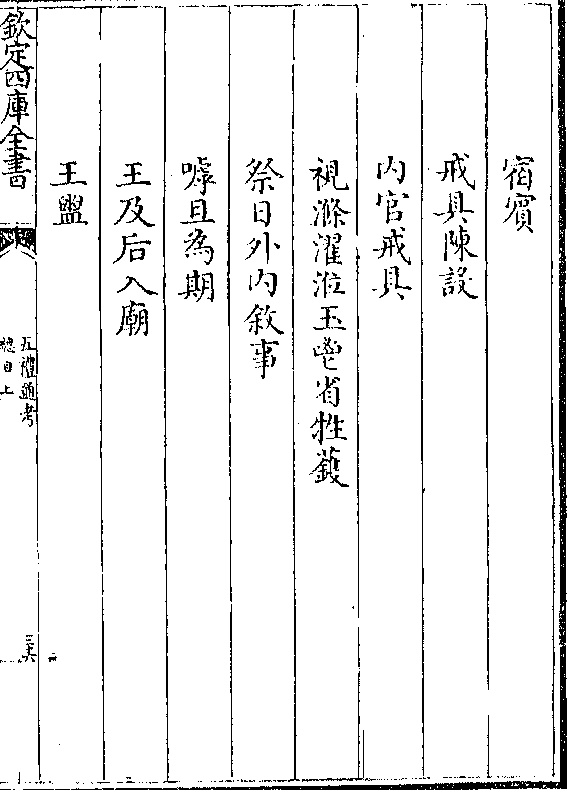 宿賓
戒具陳設
內官戒具
視滌濯涖玉鬯省牲鑊
祭日外內敘事
嘑旦為期
王及后入廟
王盥
欽定四庫全書
五禮通考
總目上